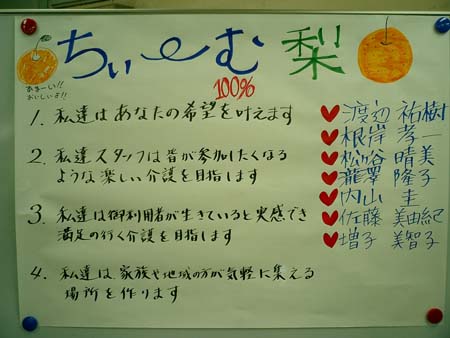 ちぃーむ 梨
あまーい!!
おいしいョ!!
100%
1. 私達はあなたの希望を叶えます
2. 私達スタッフは皆が参加したくなる
ような楽しい介護を目指します
3. 私達は御利用者が生きていると実感でき
満足の行く介護を目指します
4. 私達は、家族や地域の方が気軽に集える
場所を作ります
♥渡辺 祐樹
♥根岸 孝一
♥松谷 晴美
♥瀧澤 隆子
♥内山 圭
♥佐藤 美由紀
♥増子 美智子